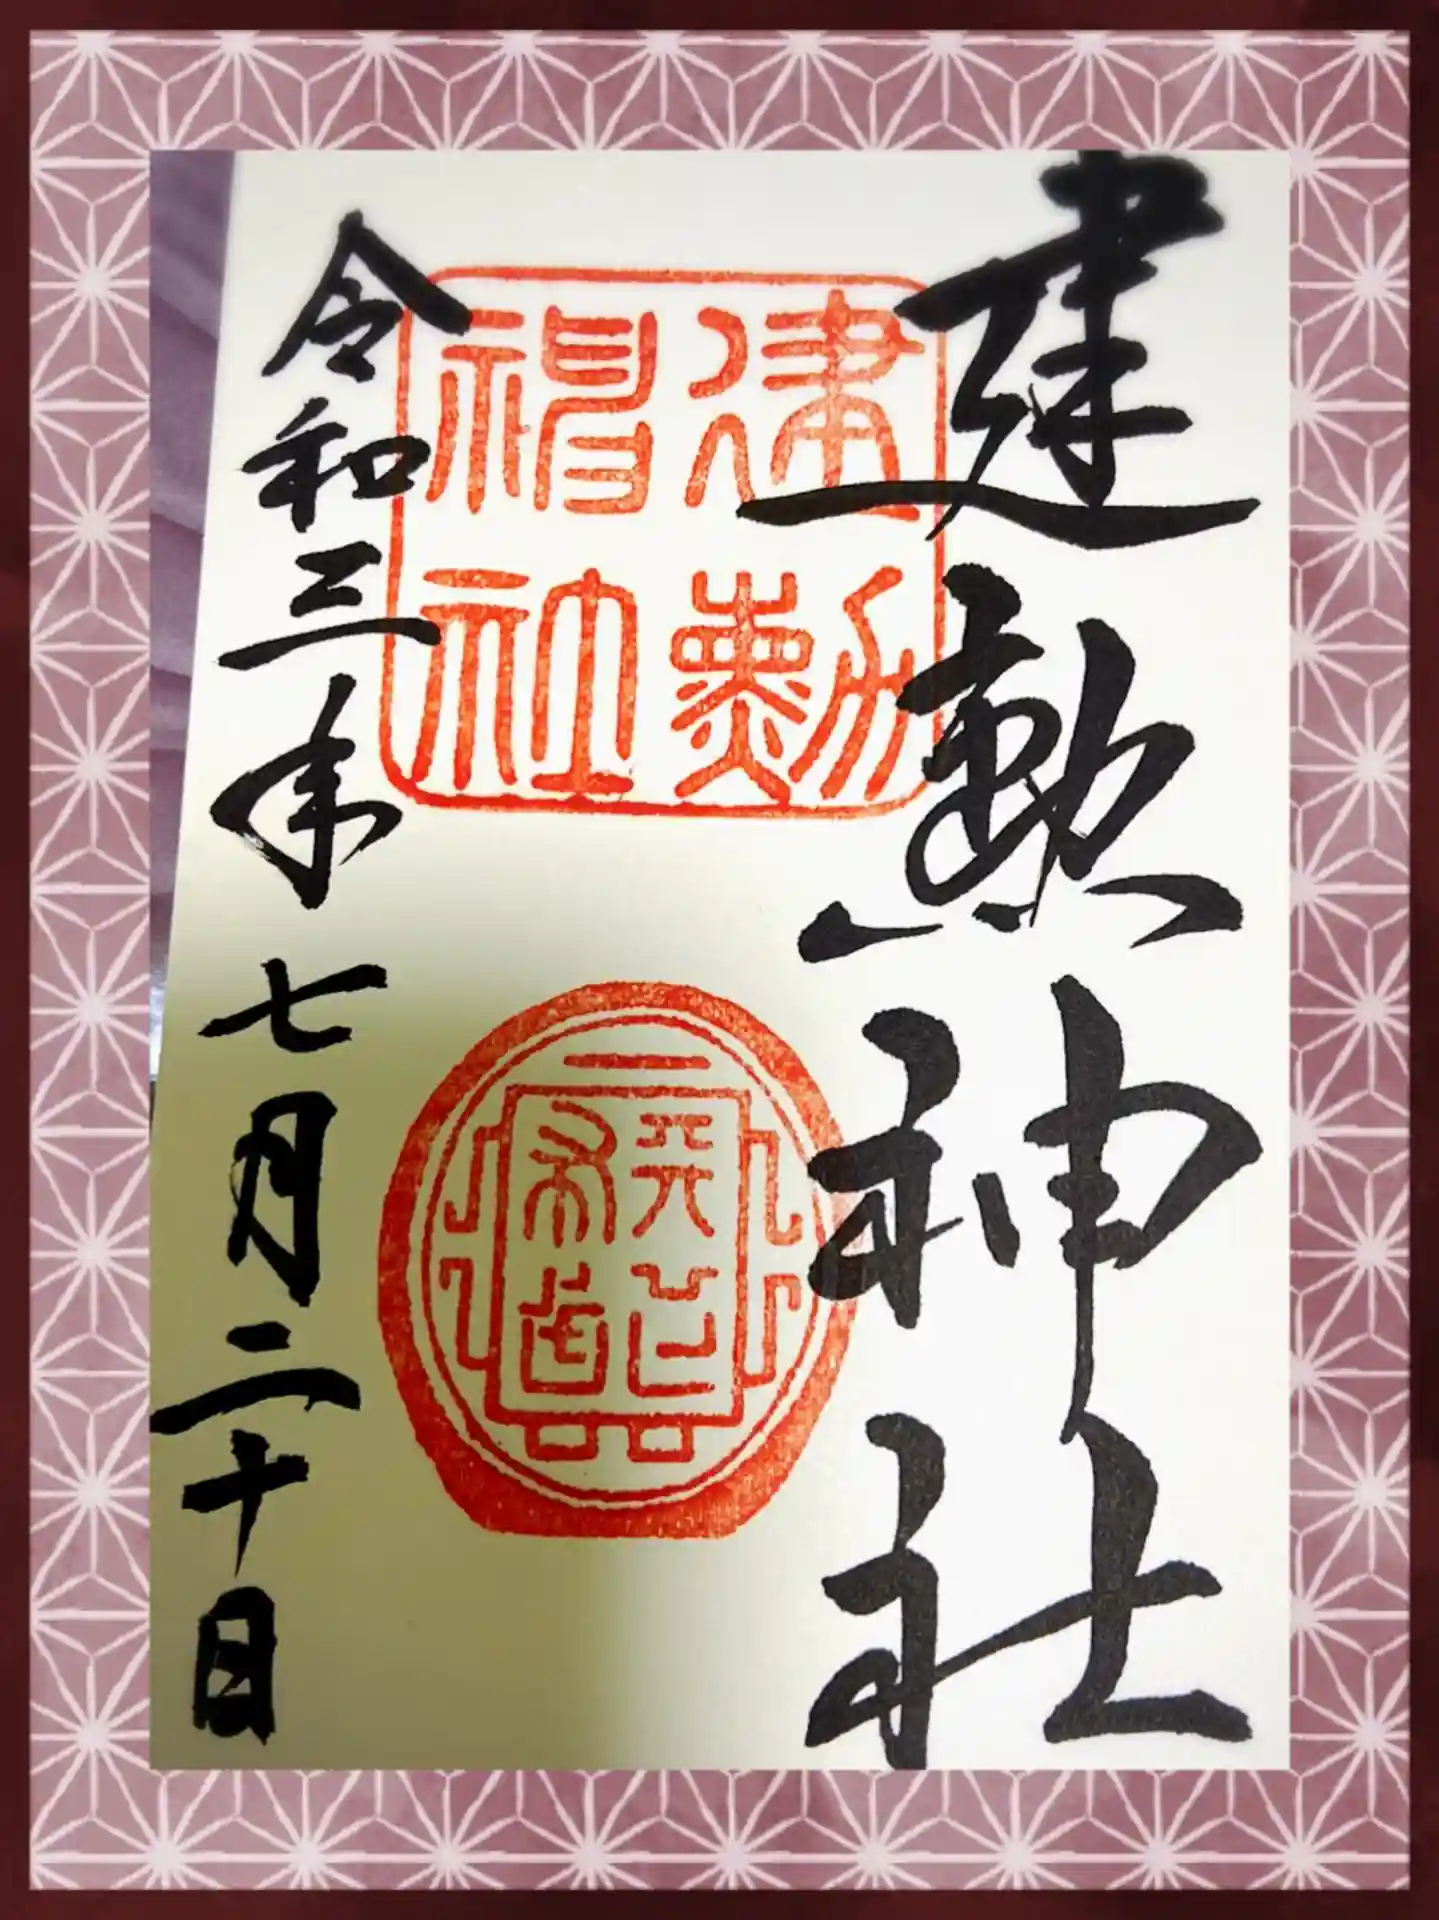 建勲神社
建勲
神社
令和三年七月二十日